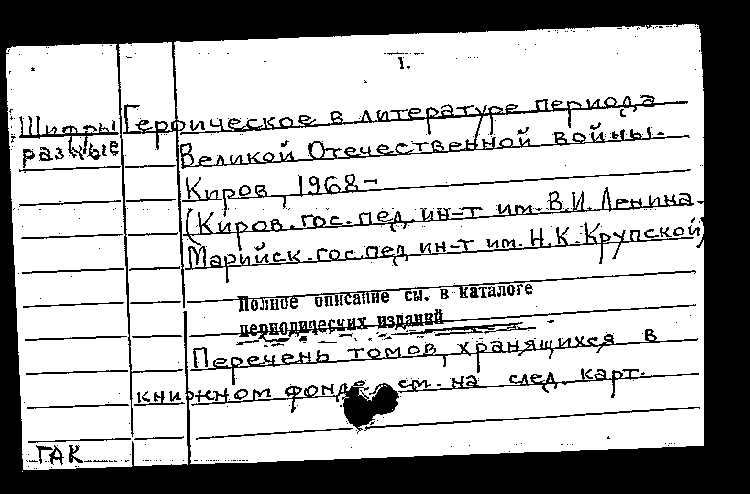 1.
Шифры Героическое в литературе периода
разные Великой Отечественной войны.
Киров, 1968-
(Киров. гос. пед. ин-т им. В.И. Ленина.
Марийск. гос. пед. ин-т им. Н.К. Крупской)
Полное описание см. в каталоге
периодических изданий
Перечень томов, хранящихся в
книжном фонде, см. на след. карт.
ГАК